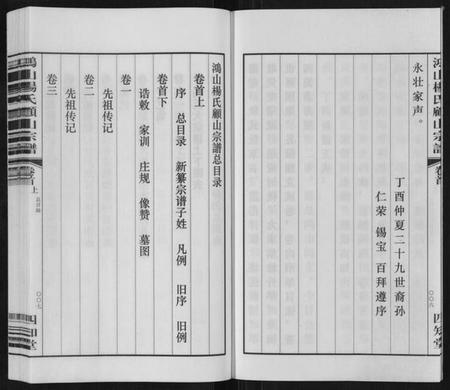 鴻山楊氏顧山宗譜
卷首
〇〇六
四知堂
永壮家声。
丁酉仲夏二十九世裔孙
仁荣 锡宝 百拜遵序
鴻山楊氏顧山宗譜总目录
卷首上
序 总目录 新纂宗谱子姓 凡例 旧序 旧例
卷首下
诰敕 家训 庄规 像赞 墓图
卷一
先祖传记
卷二
先祖传记
卷三
鴻山楊氏顧山宗譜
卷首上 总目录
〇〇七
四知堂